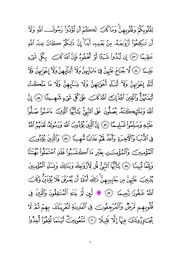 لِقُلُوبِكُمْ وَقُلُوبِهِنَّ وَمَا كَانَ لَكُمْ أَن تُؤْذُوا رَسُولَ اللَّهِ وَلَا
أَن تَنكِحُوا أَزْوَاجَهُ مِن بَعْدِهِ أَبَدًا إِنَّ ذَٰلِكُمْ كَانَ عِندَ اللَّهِ
عَظِيمًا ﴿٥٣﴾ إِن تُبْدُوا شَيْئًا أَوْ تُخْفُوهُ فَإِنَّ اللَّهَ كَانَ بِكُلِّ شَيْءٍ
عَلِيمًا ﴿٥٤﴾ لَّا جُنَاحَ عَلَيْهِنَّ فِي آبَائِهِنَّ وَلَا أَبْنَائِهِنَّ وَلَا إِخْوَانِهِنَّ وَلَا
أَبْنَاءِ إِخْوَانِهِنَّ وَلَا أَبْنَاءِ أَخَوَاتِهِنَّ وَلَا نِسَائِهِنَّ وَلَا مَا مَلَكَتْ
أَيْمَانُهُنَّ وَاتَّقِينَ اللَّهَ إِنَّ اللَّهَ كَانَ عَلَىٰ كُلِّ شَيْءٍ شَهِيدًا ﴿٥٥﴾ إِنَّ
اللَّهَ وَمَلَائِكَتَهُ يُصَلُّونَ عَلَى النَّبِيِّ يَا أَيُّهَا الَّذِينَ آمَنُوا صَلُّوا
عَلَيْهِ وَسَلِّمُوا تَسْلِيمًا ﴿٥٦﴾ إِنَّ الَّذِينَ يُؤْذُونَ اللَّهَ وَرَسُولَهُ لَعَنَهُمُ اللَّهُ
فِي الدُّنْيَا وَالْآخِرَةِ وَأَعَدَّ لَهُمْ عَذَابًا مُّهِينًا ﴿٥٧﴾ وَالَّذِينَ يُؤْذُونَ
الْمُؤْمِنِينَ وَالْمُؤْمِنَاتِ بِغَيْرِ مَا اكْتَسَبُوا فَقَدِ احْتَمَلُوا بُهْتَانًا
وَإِثْمًا مُّبِينًا ﴿٥٨﴾ يَا أَيُّهَا النَّبِيُّ قُل لِّأَزْوَاجِكَ وَبَنَاتِكَ وَنِسَاءِ الْمُؤْمِنِينَ
يُدْنِينَ عَلَيْهِنَّ مِن جَلَابِيبِهِنَّ ذَٰلِكَ أَدْنَىٰ أَن يُعْرَفْنَ فَلَا يُؤْذَيْنَ وَكَانَ
اللَّهُ غَفُورًا رَّحِيمًا ﴿٥٩﴾ لَّئِن لَّمْ يَنتَهِ الْمُنَافِقُونَ وَالَّذِينَ فِي
قُلُوبِهِم مَّرَضٌ وَالْمُرْجِفُونَ فِي الْمَدِينَةِ لَنُغْرِيَنَّكَ بِهِمْ ثُمَّ لَا
يُجَاوِرُونَكَ فِيهَا إِلَّا قَلِيلًا ﴿٦٠﴾ مَّلْعُونِينَ أَيْنَمَا ثُقِفُوا أُخِذُوا